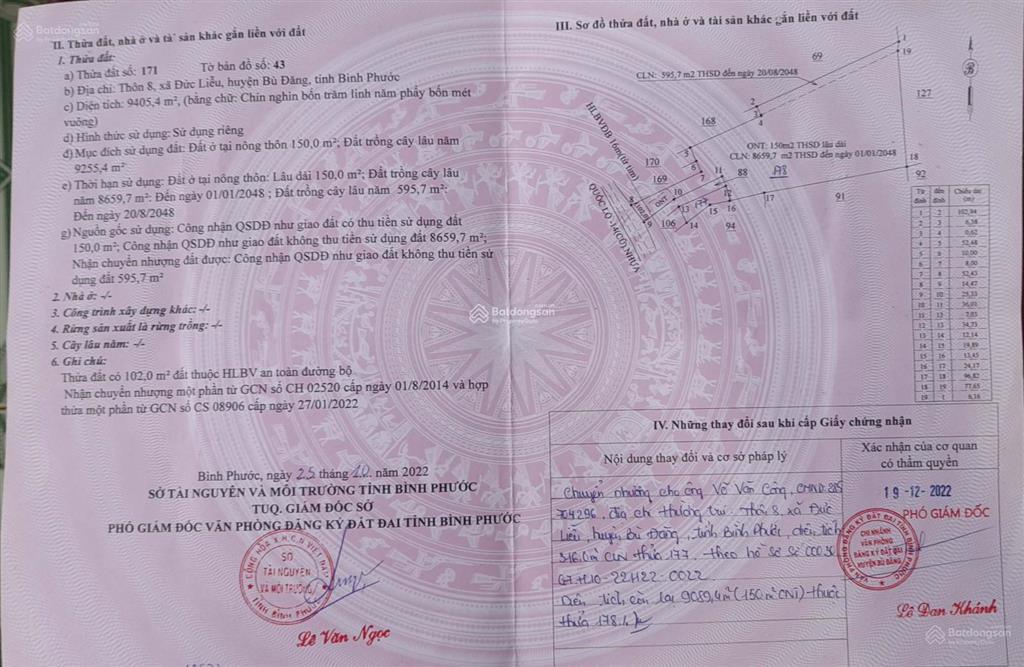 II. Thửa đất, nhà ở và tài sản khác gắn liền với đất
1. Thửa đất:
a) Thửa đất số: 171 Tờ bản đồ số: 43
b) Địa chỉ: Thôn 8, xã Đức Liễu, huyện Bù Đăng, tỉnh Bình Phước
c) Diện tích: 9405,4 m², (bằng chữ: Chín nghìn bốn trăm linh năm phẩy bốn mét
vuông)
d) Hình thức sử dụng: Sử dụng riêng
đ) Mục đích sử dụng đất: Đất ở tại nông thôn 150,0 m²; Đất trồng cây lâu năm
9255,4 m²
e) Thời hạn sử dụng: Đất ở tại nông thôn: Lâu dài 150,0 m²; Đất trồng cây lâu
năm 8659,7 m²: Đến ngày 01/01/2048 ; Đất trồng cây lâu năm 595,7 m²:
Đến ngày 20/8/2048
g) Nguồn gốc sử dụng: Công nhận QSDĐ như giao đất có thu tiền sử dụng đất
150,0 m²; Công nhận QSDĐ như giao đất không thu tiền sử dụng đất 8659,7 m²;
Nhận chuyển nhượng đất được: Công nhận QSDĐ như giao đất không thu tiền sử
dụng đất 595,7 m²
2. Nhà ở: -/-
3. Công trình xây dựng khác: -/-
4. Rừng sản xuất là rừng trồng: -/-
5. Cây lâu năm: -/-
6. Ghi chú:
Thửa đất có 102,0 m² đất thuộc HLBV an toàn đường bộ
Nhận chuyển nhượng một phần từ GCN số CH 02520 cấp ngày 01/8/2014 và hợp
thửa một phần từ GCN số CS 08906 cấp ngày 27/01/2022
Bình Phước, ngày 25 tháng 10 năm 2022
SỞ TÀI NGUYÊN VÀ MÔI TRƯỜNG TỈNH BÌNH PHƯỚC
TUQ. GIÁM ĐỐC SỞ
PHÓ GIÁM ĐỐC VĂN PHÒNG ĐĂNG KÝ ĐẤT ĐAI TỈNH BÌNH PHƯỚC
CỘNG HÒA X.H.C.N VIỆT NAM
SỞ
TÀI NGUYÊN
VÀ MÔI TRƯỜNG
TỈNH BÌNH PHƯỚC
Lê Văn Ngọc
III. Sơ đồ thửa đất, nhà ở và tài sản khác gắn liền với đất
1
19
69
CLN: 595,7 m2 THSD đến ngày 20/08/2048
127
2
3
4
168
HLBVĐB 16m(từ tim)
ONT: 150m2 THSD lâu dài
CLN: 8659,7 m2 THSD đến ngày 01/01/2048
170
169
5
6
11
88
178
18
92
QUỐC LỘ 14(CŨ) NHỰA
ONT
10
12
177
17
91
9
13
15
16
106
14
94
Từ đỉnh đến đỉnh Chiều dài (m)
1 2 102,94
2 3 6,38
3 4 0,62
4 5 52,48
5 6 10,00
6 7 8,00
7 8 52,43
8 9 14,47
9 10 25,33
10 11 36,03
11 12 7,03
12 13 34,73
13 14 12,14
14 15 19,89
15 16 13,45
16 17 24,17
17 18 96,82
18 19 77,65
19 1 6,16
IV. Những thay đổi sau khi cấp Giấy chứng nhận
Nội dung thay đổi và cơ sở pháp lý
Xác nhận của cơ quan
có thẩm quyền
Chuyển nhượng cho ông Võ Văn Công, CMND: 285
704296, địa chỉ thường trú: Thôn 8, xã Đức
Liễu, huyện Bù Đăng, tỉnh Bình Phước, diện tích
346,0m² CLN thửa 177, theo hồ sơ số 00030
Diện tích còn lại 9059,4m² (150m² ONT) thuộc
thửa 178./.
19-12-2022
PHÓ GIÁM ĐỐC
VĂN PHÒNG ĐĂNG KÝ ĐẤT ĐAI TỈNH BÌNH PHƯỚC
CHI NHÁNH
VĂN PHÒNG
ĐĂNG KÝ ĐẤT ĐAI
HUYỆN BÙ ĐĂNG
Lê Đan Khánh
Batdongsan
by PropertyGuru
Batdongsan
by PropertyGuru
Batdongsan
by PropertyGuru